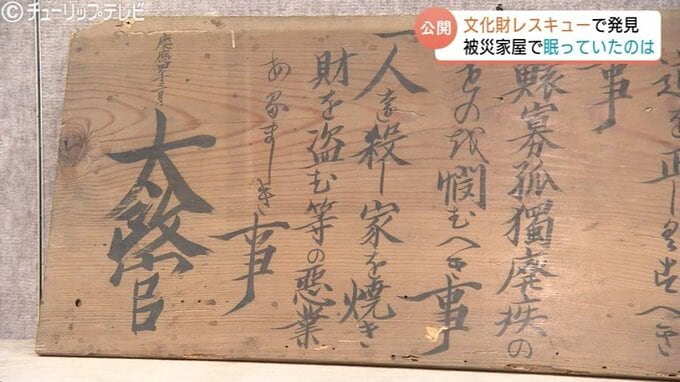 チューリップテレビ
公開
文化財レスキューで発見
被災家屋で眠っていたのは
道を正しくすへき
事
鰥寡孤獨廢疾の
ものを憫むへき事
一人を殺し家を焼き
財を盗む等の惡業
あるましき事
慶應四年三月
太政官